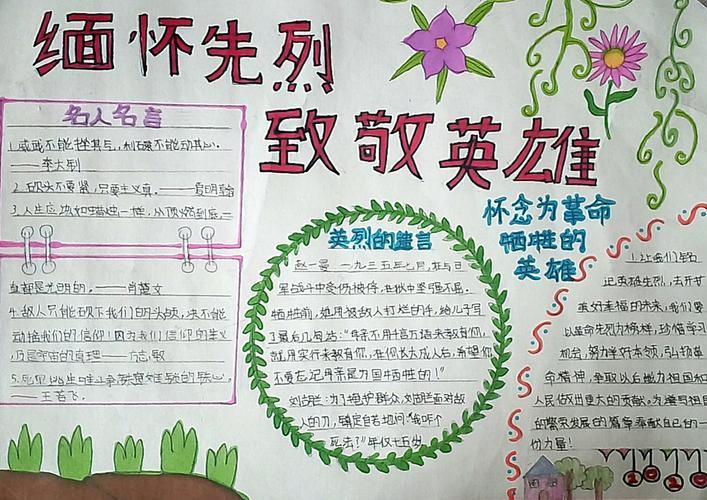 缅怀先烈
致敬英雄
名人名言
1.威武不能挫其气,利禄不能动其心。
——李大钊
2.砍头不要紧,只要主义真。——夏明翰
3.人生应该如蜡烛一样,从顶燃到底,一
直都是光明的。——肖楚女
4.敌人只能砍下我们的头颅,决不能
动摇我们的信仰!因为我们信仰的主义,
乃是宇宙的真理——方志敏
——王若飞。
英烈的遗言
赵一曼 一九三五年七月,在与日
军战斗中受伤被俘,在狱中坚强不屈。
牺牲前,她用被敌人打烂的手,给儿子写
了最后几句话:"母亲不用千言万语来教育你,
就用实行来教育你,在你长大成人后,希望你
不要忘记母亲是为国牺牲的!"
刘胡兰:为了维护群众,刘胡兰面对敌
人的刀,镇定自若地问:"我咋个
死法?"年仅十五岁
怀念为革命
牺牲的
英雄
1.让我们铭
记英雄先烈,去开扩
美好幸福的未来,我们要
以革命先烈为榜样,珍惜学习
机会,努力学好本领,弘扬革
命精神,争取以后能为祖国和
人民做出更大的贡献。为推动祖国
的繁荣发展的篇章奉献自己的一
份力量!